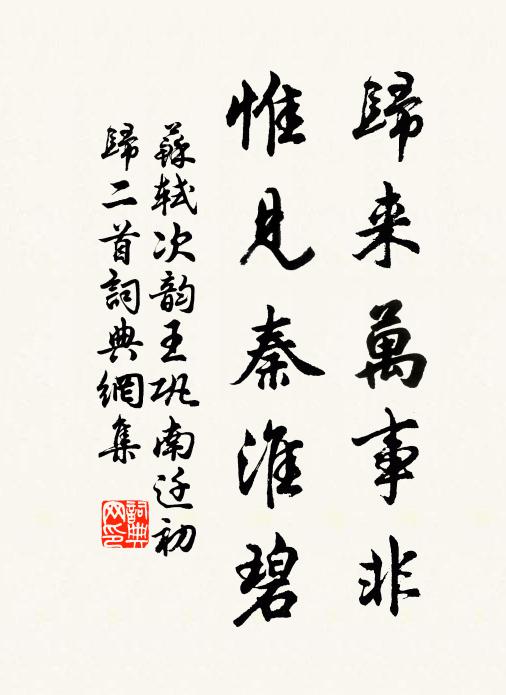 歸来萬事非
惟見秦淮碧
蘇軾次韵王巩南迁初
歸二首詞典網集
詞典
网印